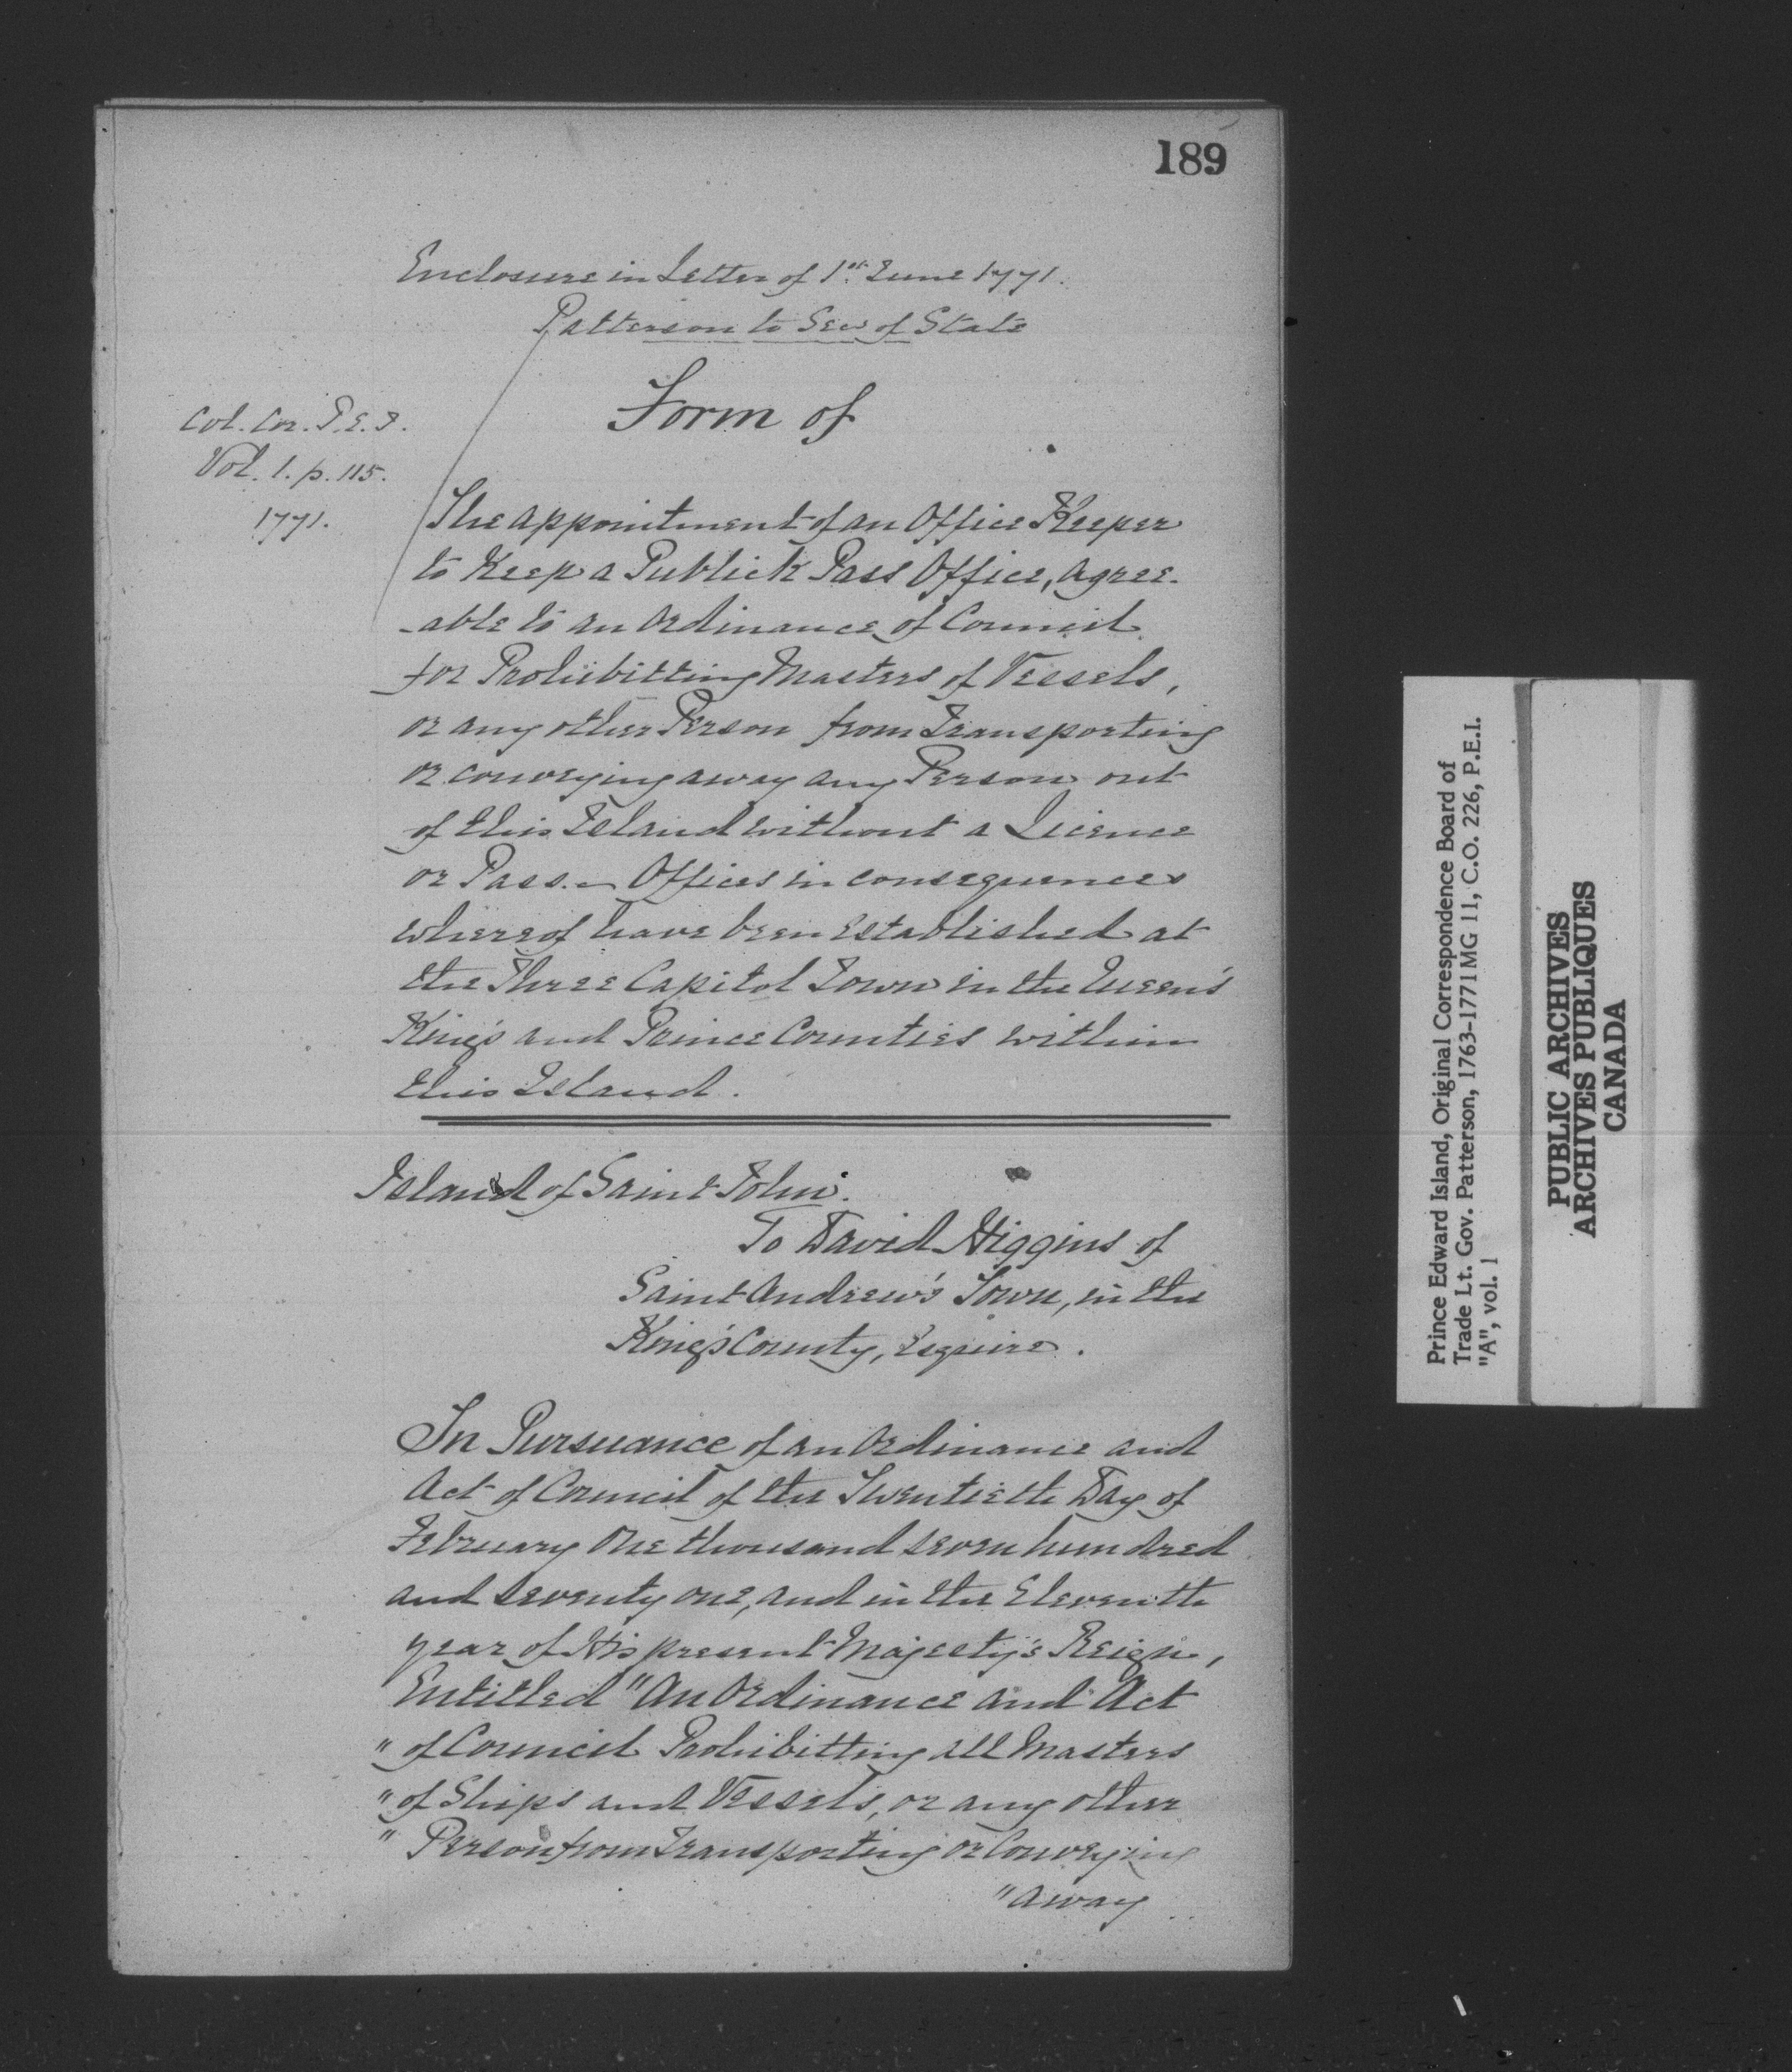 189
Enclosure in Letter of 1st June 1771.
Patterson to Sec of State
Col. Cor. P.E.I.
Vol. 1. p. 115.
1771.
Form of
The appointment of an Office Keeper
to Keep a Publick Pass Office, agree-
-able to an Ordinance of Council
for Prohibitting Masters of Vessels,
or any other Person from Transporting
or conveying away any Person out
of this Island without a Licence
or Pass. — Offices in consequence
whereof have been Established at
the Three Capitol Town in the Queen's
King's and Prince Counties within
this Island.
Island of Saint John.
To David Higgins of
Saint Andrew's Town, in the
King's County, Esquire.
In Pursuance of an Ordinance and
Act of Council of the Twentieth Day of
February One thousand seven hundred
and seventy one, and in the Eleventh
year of His present Majesty's Reign,
Entitled "An Ordinance and Act
" of Council Prohibitting all Masters
" of Ships and Vessels, or any other
" Person from Transporting or Conveying
" away
Prince Edward Island, Original Correspondence Board of
Trade Lt. Gov. Patterson, 1763-1771 MG 11, C.O. 226, P.E.I.
"A", vol. 1
PUBLIC ARCHIVES
ARCHIVES PUBLIQUES
CANADA